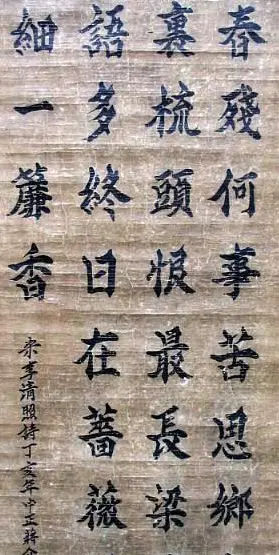 春殘何事苦思鄉
裏梳頭恨最長梁
語多終日在薔薇
細一簾香
宋李清照詩丁亥年中正蔣